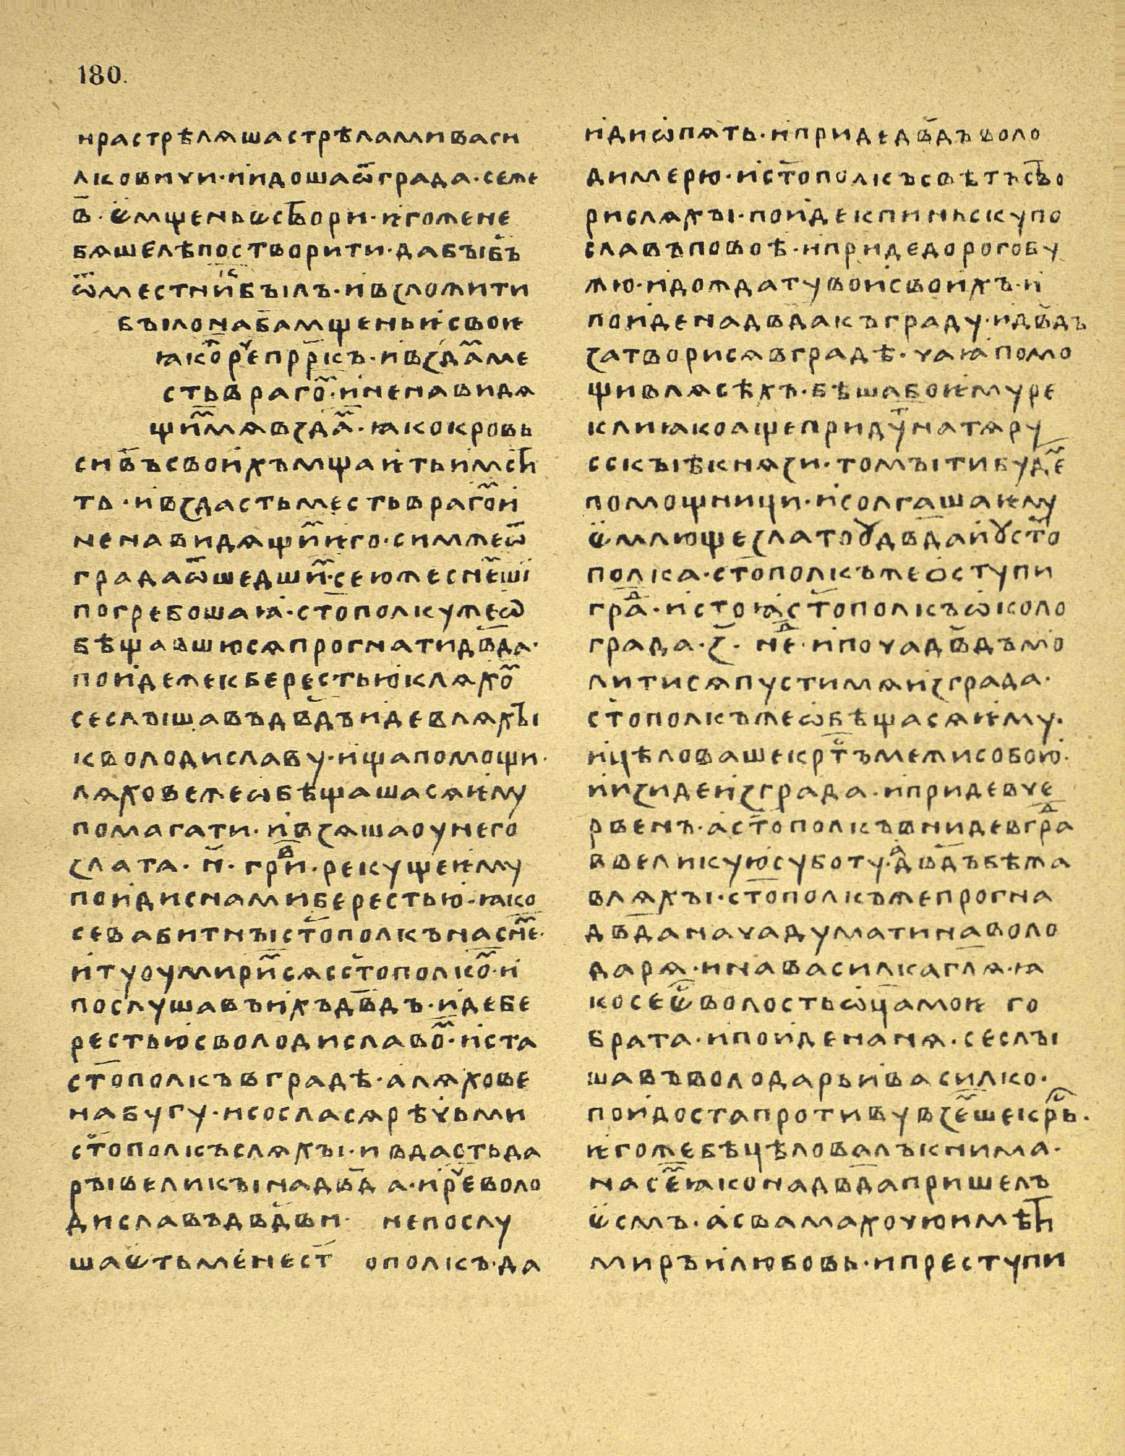 180.
нрастрѣляшастрѣламиваси
лковичи·и҆идошаѿграда·сеже
в҃·ѥмщеньѥствори·ѥгожене
бяшелѣпостворити·дабыб҃ъ
ѿместни҆кбылъ·ивъзложити
былонаб҃амщеньѥ҆своѥ
ꙗкоⷤрⷱ҇епрⷪ҇ркъ·ивъздаⷨме
стьврагоⷨ·и҆ненавидя
щиⷨмявъздаⷨ·ꙗкокровь
сн҃въсвои҆хъмщаѥтьи҆мьсти
ть·и҆въздастьместьврагоⷨи҆
ненавидящиⷨѥго·симжеѿ
градаѿшедшиⷨ·сеюжеснеⷨши
погребошаꙗ·ст҃ополкужеѡ
бѣщавшюсяпрогнатидв҃да·
пои҆дежекберестьюкляхоⷨ
сеслышавъдв҃дъи҆девляхы
кволодиславу·и҆щапомощи·
ляховежеѡбѣщашасяѥму
помагати·и҆взяшаоунего
злата·н҃·гриⷡ·рекущеѥму
пои҆диснамиберестью·ꙗко
севабитныст҃ополкънаснеⷨ·
и҆туоумириⷨсясст҃ополкоⷨ·и҆
послушавъи҆хъдв҃дъ·и҆дебе
рестьюсволодиславоⷨ·и҆ста
ст҃ополкъвградѣ·аляхове
набугу·исосласярѣчьми
ст҃ополкъсляхы·ивдастьда
рывеликынадв҃да·и҆рⷱ҇еволо
диславъдв҃дви· непослу
шаѥтьменест҃ ополкъ·да
и҆диѡпять·и҆придедв҃дъволо
димерю·и҆ст҃ополкъсвѣтъство
рисляхы·пои҆декпиньскупо
славъповоѣ·ипридедорогобу
жю·и҆дождатувои҆свои҆хъ·и҆
пои҆денадв҃дакъграду·и҆дв҃дъ
затворисявградѣ·чаꙗ҆помо
щивлясѣхъ·бѣшабоѥмуре
клиꙗкоащепридуⷮнатяру
сскыѣкнязи·томытибудеⷨ
помощници·и҆солгашаѥму
ѥмлющезлатоꙋдв҃даи҆ꙋст҃о
полка·ст҃ополкъжеоступи
граⷣ·и҆стоꙗст҃ополкъѡколо
града·з҃·неⷣ·и҆почадв҃дъмо
литисяпустимяи҆зграда·
ст҃ополкъжеѡбѣщасяѥму·
и҆цѣловашекрⷭ҇тъмежисобою·
и҆и҆зидеи҆зграда·и҆придевче
рвенъ·а҆ст҃ополкъвнидевграⷣ
ввеликуюсуботу·адв҃дъбѣжа
вляхы·ст҃ополкъжепрогна
дв҃даначадуматинаволо
даря·и҆навасилкагл҃я·ꙗ
косеѥⷭ҇волостьѡц҃амоѥ го
брата·и҆пои҆денаня·сеслы
шавъволодарьи҆василко·
пои҆достапротивувземшекрⷭ҇тъ·
ѥгожебѣцѣловалъкнима·
насеⷨꙗконадв҃дапришелъ
ѥсмъ·а҆свамахочюимѣти
миръи҆любовь·и҆преступи